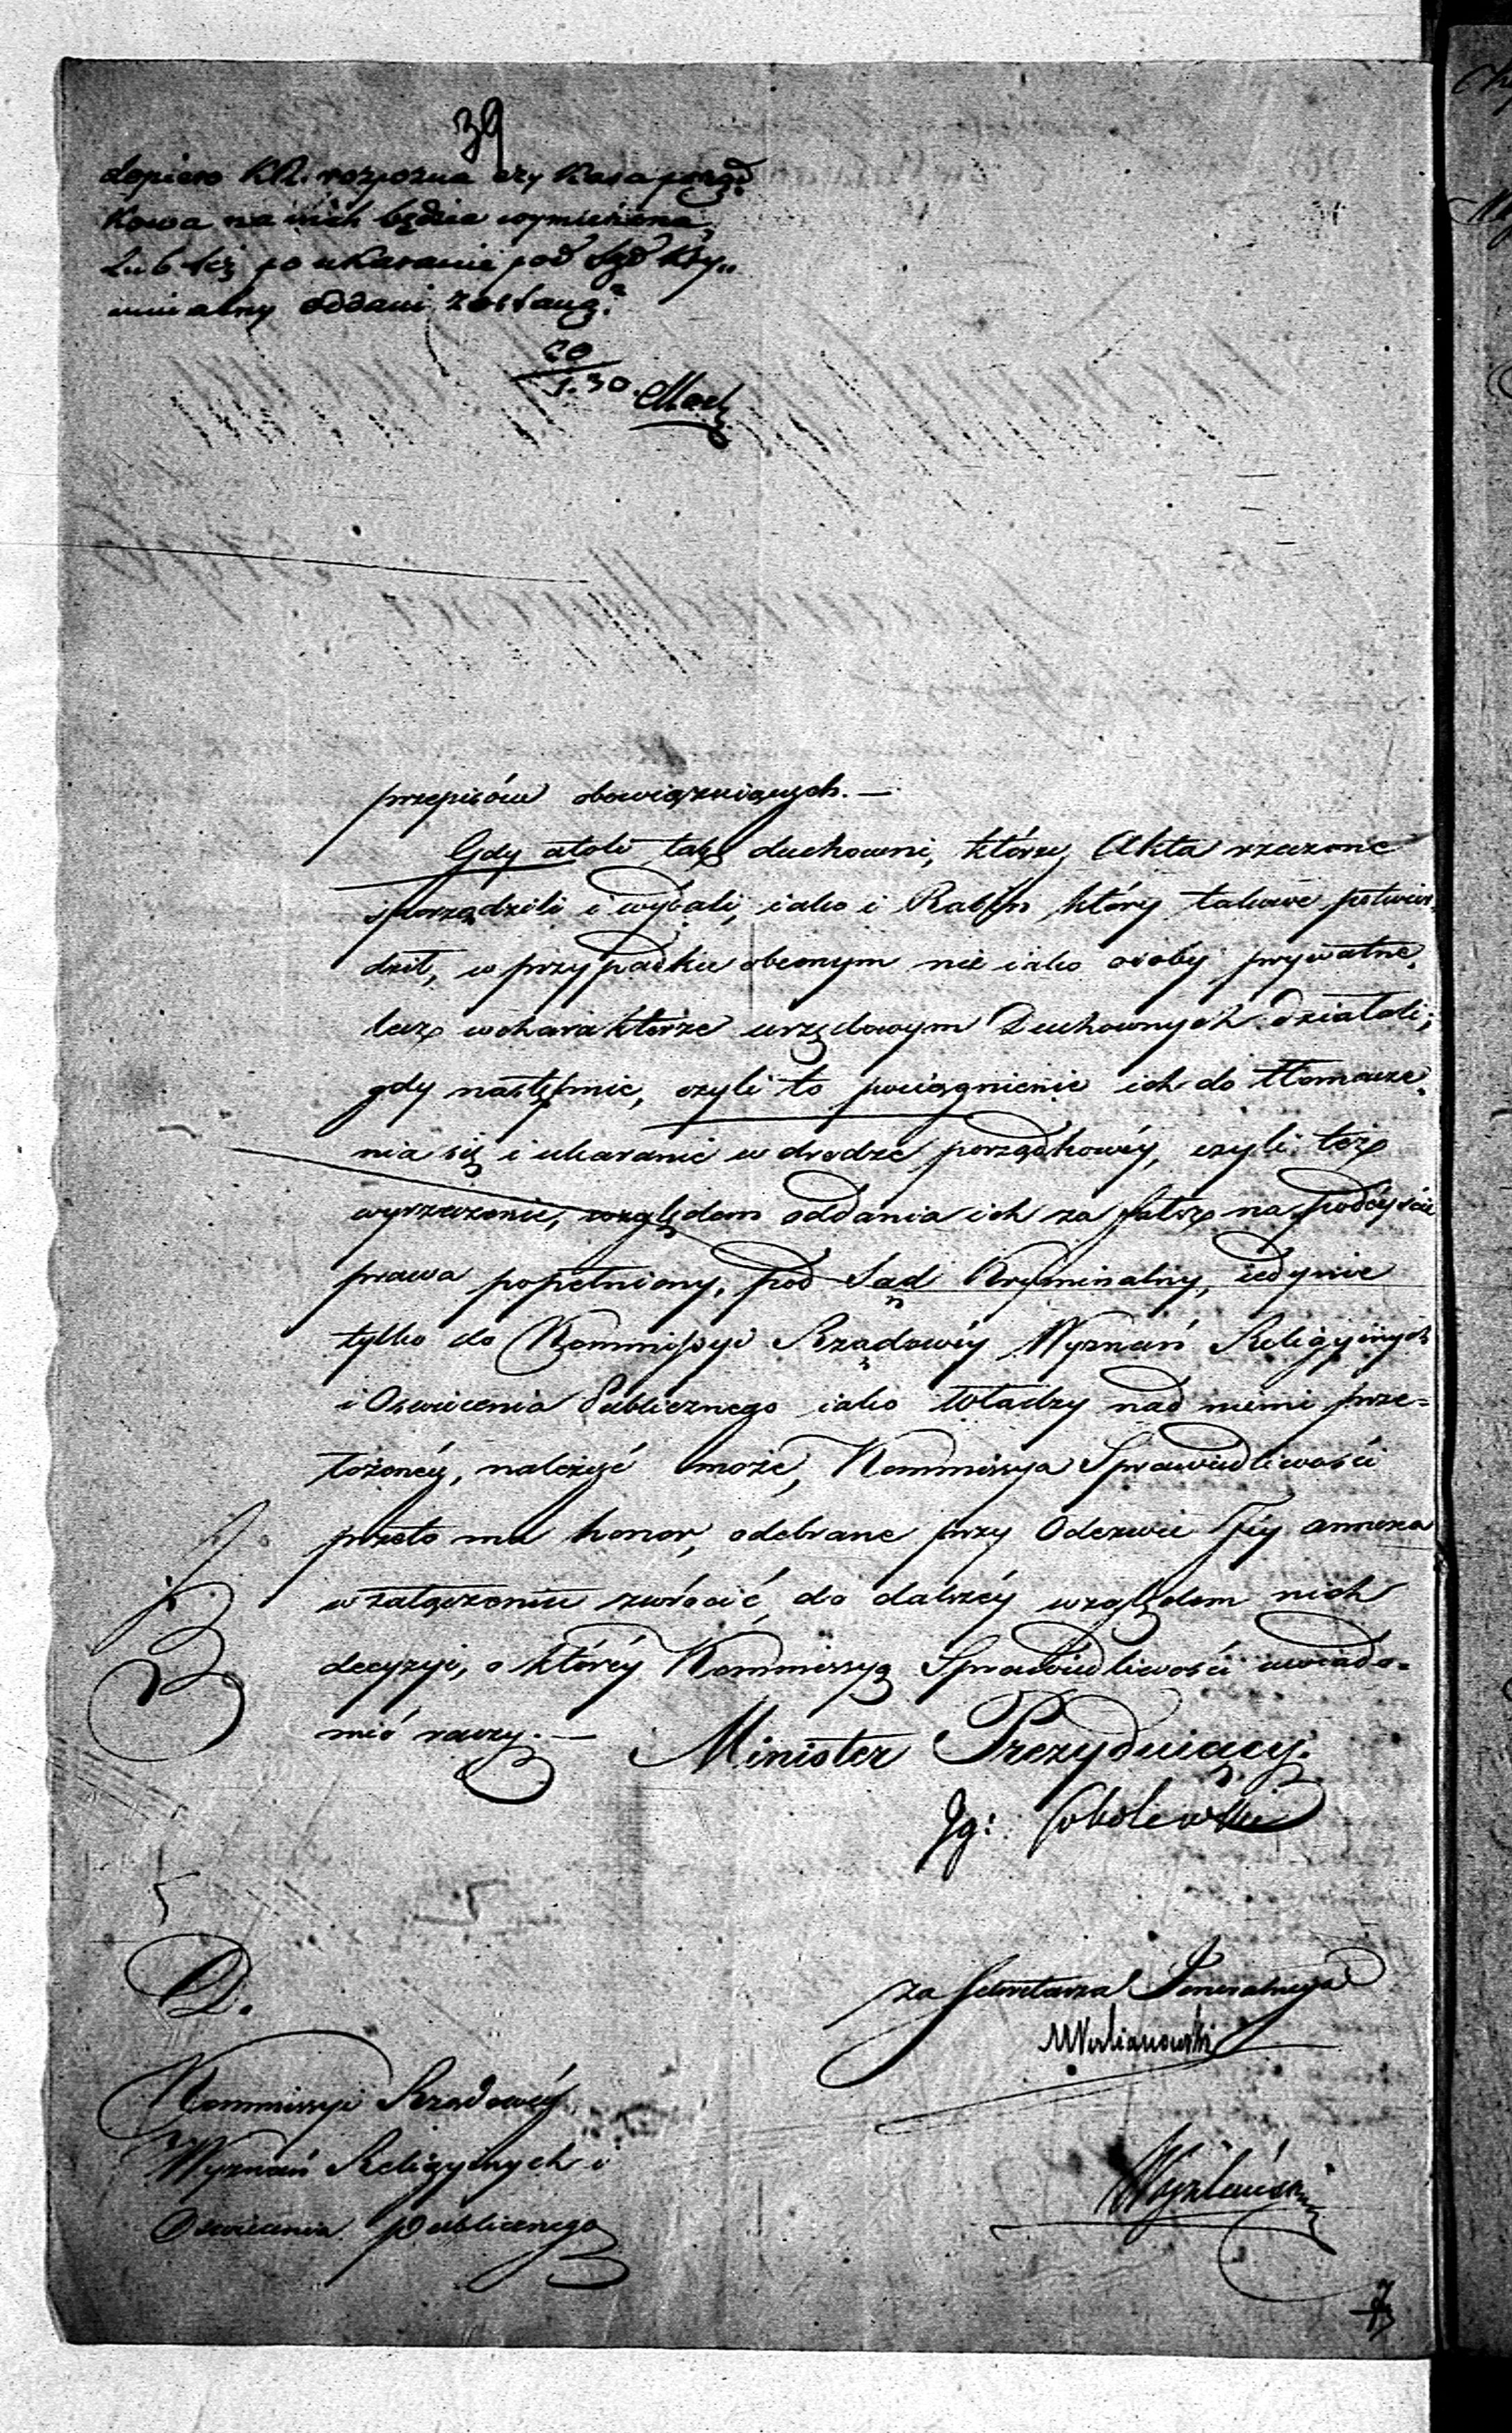 39
dopiero KR. rozpozna czy Kara porząd
kowa na nich będzie wymierzona,
lub też po ukaraniu pod Sąd Kry„
minalny oddani zostaną.
20/1. 30.
przepisów obowiązuiących. —
Gdy atoli tak duchowni, którzy Akta rzeczone
sporządzili i wydali, iako i Rabin który takowe potwier
dził, w przypadku obecnym nie iako osoby prywatne,
lecz w charakterze urzędowym Duchownych działali;
gdy następnie, czyli to pociągnienie ich do tłomacze,
nia się i ukaranie w drodze porządkowéy, czyli też
wyrzeczenie, względem oddania ich za fałsz na podeyście
prawa popełniony, pod Sąd Kryminalny, iedynie
tylko do Kommissyi Rządowéy Wyznań Religyinych
i Oświecenia Publicznego iako Władzy nad niemi prze=
łożonéy, należyć może, Kommissya Sprawiedliwości
przeto ma honor, odebrane przy Odezwie Jéy annexa
w załączeniu zwrócić, do dalszéy względem nich
decyzyi, o któréy Kommissyą Sprawiedliwości uwiado=
mić raczy. —
Minister Prezyduiący.
Ig: Sobolewski
za Sekretarza Jeneralnego
D.
Kommissyi Rządowéy
Wyznań Religyinych i
Oświecenia Publicznego